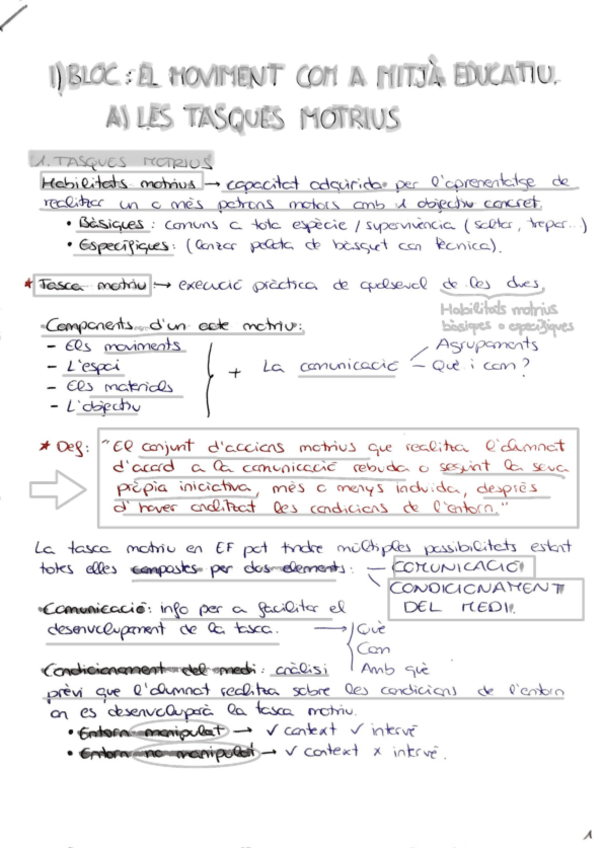 1) BLOC: EL MOVIMENT COM A MITJÀ EDUCATIU.
A) LES TASQUES MOTRIUS
1. TASQUES MOTRIUS
Habilitats motrius → capacitat adquirida per l'aprenentatge de
realitzar un o més patrons motors amb 1 objectiu concret.
• Bàsiques: comuns a tota espècie / supervivència (saltar, trepar...)
• Específiques: (llançar pelota de bàsquet con tècnica).
* Tasca motriu → execució pràctica de qualsevol de les dues.
Habilitats motrius
bàsiques o específiques
Components d'un acte motriu:
- Els moviments
- L'espai
- Els materials
- L'objectiu
+ La comunicació
Agrupaments
- Què i com?
* Def: "El conjunt d'accions motrius que realitza l'alumnat
d'acord a la comunicació rebuda o seguint la seva
pròpia iniciativa, més o menys induida, després
d'haver analitzat les condicions de l'entorn."
La tasca motriu en EF pot tindre múltiples possibilitats estant
totes elles compostes per dos elements:
- COMUNICACIÓ
- CONDICIONAMENT
DEL MEDI.
Comunicació: info per a facilitar el
desenvolupament de la tasca. →
Què
Com
Amb què
Condicionament del medi: anàlisi
prèvi que l'alumnat realitza sobre les condicions de l'entorn
on es desenvoluparà la tasca motriu.
• Entorn manipulat → ✓ context ✓ intervé
• Entorn no manipulat → ✓ context x intervé.
1